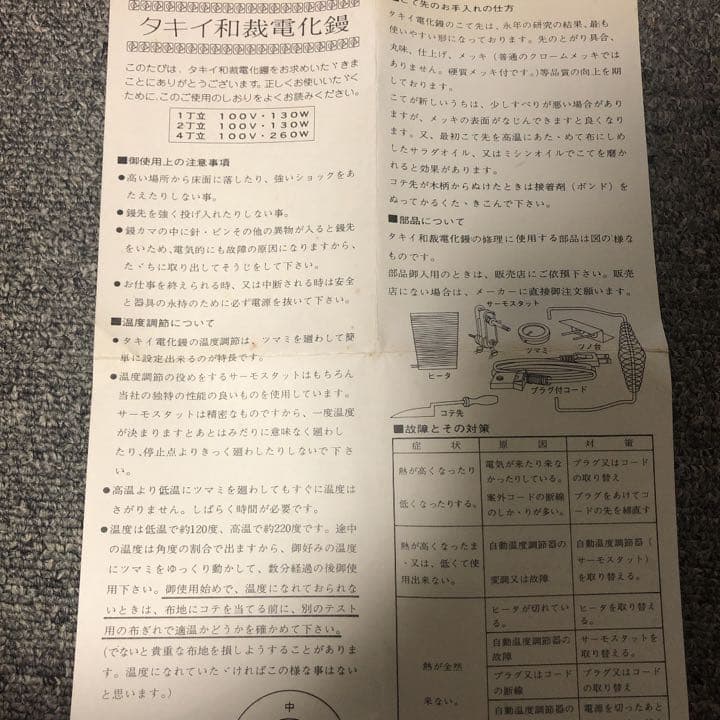 タキイ和裁電化鏝
このたびは、タキイ和裁電化鏝をお求めいたゞきま
ことにありがとうございます。正しくお使いいたゞく
ために、このご使用のしおりをよくお読みください。
1丁立 100V・130W
2丁立 100V・130W
4丁立 100V・260W
■御使用上の注意事項
●高い場所から床面に落したり、強いショックをあ
たえたりしない事。
●鏝先を強く投げ入れたりしない事。
●鏝カマの中に針・ピンその他の異物が入ると鏝先
をいため、電気的にも故障の原因になりますから、
たゞちに取り出してそうじをして下さい。
●お仕事を終えられる時、又は中断される時は安全
と器具の永持のために必ず電源を抜いて下さい。
■温度調節について
●タキイ電化鏝の温度調節は、ツマミを廻わして簡
単に設定出来るのが特長です。
●温度調節の役めをするサーモスタットはもちろん
当社の独特の性能の良いものを使用しています。
サーモスタットは精密なものですから、一度温度
が決まりますとあとはみだりに意味なく廻わし
たり、停止点よりきっく廻わしたりしないで下さ
い。
●高温より低温にツマミを廻わしてもすぐに温度は
さがりません。しばらく時間が必要です。
●温度は低温で約120度、高温で約220度です。途中
の温度は角度の割合で出ますから、御好みの温度
にツマミをゆっくり動かして、数分経過の後御使
用下さい。御使用始めで、温度になれておられな
いときは、布地にコテを当てる前に、別のテスト
用の布ぎれで適温かどうかを確かめて下さい。
(でないと貴重な布地を損しようすることがあり
ます。温度になれていたゞければこの様な事はない
と思います。)
中
こて先のお手入れの仕方
タキイ電化鏝のこて先は、永年の研究の結果、最も
使いやすい形になっております。先のとがり具合、
丸味、仕上げ、メッキ（普通のクロームメッキでは
ありません。硬質メッキ付です。）等品質の向上を期
しております。
こてが新しいうちは、少しすべりが悪い場合があり
ますが、メッキの表面がなじんできますと良くなりま
す。又、最初こて先を高温にあたゝめて布にしめ
したサラダオイル、又はミシンオイルでこてを磨か
れると効果があります。
コテ先が木柄からぬけたときは接着剤（ボンド）を
ぬってかるくたゝきこんで下さい。
■部品について
タキイ和裁電化鏝の修理に使用する部品は図の様な
ものです。
部品御入用のときは、販売店にご依頼下さい。販売
店にない場合は、メーカーに直接御注文願います。
サーモスタット
ツマミ
ツノ台
ヒータ
プラグ付コード
コテ先
■故障とその対策
症状 原因 対策
熱が高くなったり 電気が来たり来な プラグ又はコード
かったりしている。 の取り替え
低くなったりする。 案外コードの断線 プラグをあけてコ
のしかゝりが多い。 ードの先を縮直す
熱が高くなったま 自動温度調節器の 自動温度調節器（
・又は、低くて使 サーモスタット）
用出来ない。 変調又は故障 を取り替える。
ヒータが切れてい ヒータを取り替え
る。 る。
自動温度調節器の サーモスタットを
故障 取り替える。
熱が全然 プラグ又はコード プラグ又はコード
来ない。 の断線 の取り替え
自動温度調節器の 電源を切ったあと